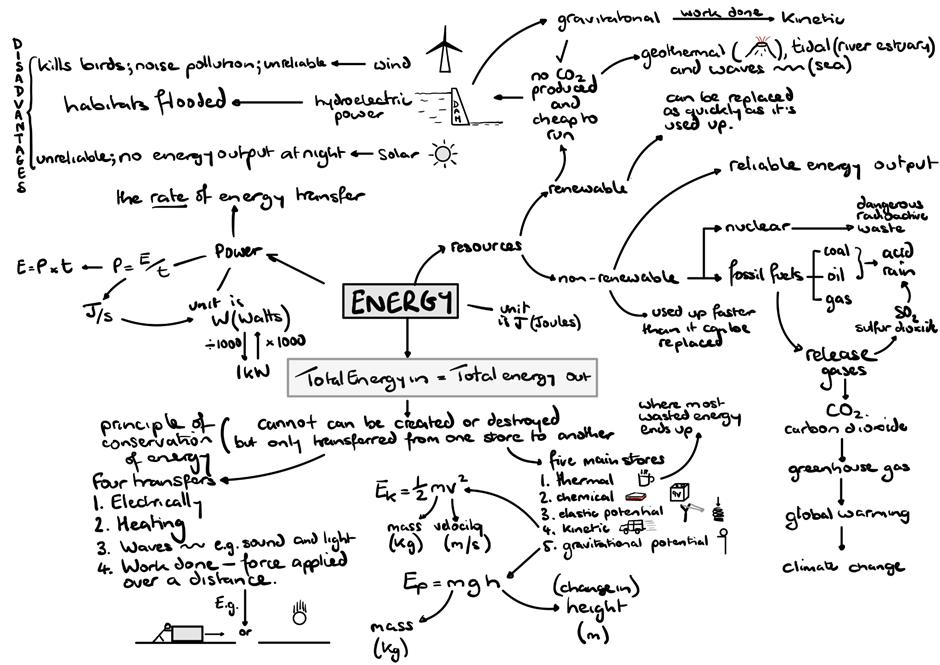 gravitational work done kinetic
DISADVANTAGES
kills birds; noise pollution; unreliable wind
habitats flooded hydroelectric
power
DAM
unreliable; no energy output at night Solar
no CO₂
produced
and
cheap to
run
geothermal ( ), tidal (river estuary)
and waves (sea)
can be replaced
as quickly as it's
used up.
renewable
reliable energy output
resources
nuclear
dangerous
radioactive
waste
non-renewable
fossil fuels
coal
oil
gas
acid
rain
SO₂
sulfur dioxide
used up faster
than it can be
replaced
release
gases
CO₂.
carbon dioxide
greenhouse gas
global warming
climate change
the rate of energy transfer
Power
E=P×t P=E/t
J/s
unit is
W (Watts)
÷1000 ×1000
1kW
ENERGY
unit
is J (Joules)
Total Energy in = Total energy out
principle of
conservation
of energy
cannot can be created or destroyed
but only transferred from one store to another
four transfers
1. Electrically
2. Heating
3. Waves e.g. sound and light
4. Work done – force applied
over a distance.
E.g.
or
where most
wasted energy
ends up
five main stores
1. thermal
2. chemical
9V
3. elastic potential
4. kinetic
5. gravitational potential
Eₖ = ½mv²
mass
(kg)
velocity
(m/s)
Eₚ = mgh
mass
(kg)
(change in)
height
(m)